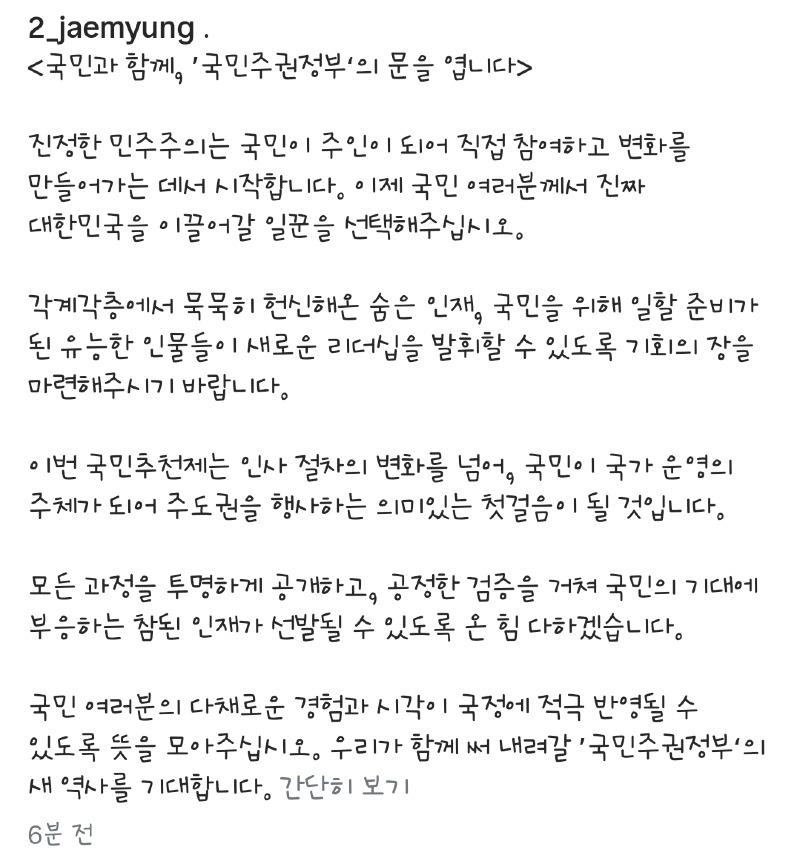 2_jaemyung .
<국민과 함께, '국민주권정부'의 문을 엽니다>
진정한 민주주의는 국민이 주인이 되어 직접 참여하고 변화를
만들어가는 데서 시작합니다. 이제 국민 여러분께서 진짜
대한민국을 이끌어갈 일꾼을 선택해주십시오.
각계각층에서 묵묵히 헌신해온 숨은 인재, 국민을 위해 일할 준비가
된 유능한 인물들이 새로운 리더십을 발휘할 수 있도록 기회의 장을
마련해주시기 바랍니다.
이번 국민추천제는 인사 절차의 변화를 넘어, 국민이 국가 운영의
주체가 되어 주도권을 행사하는 의미있는 첫걸음이 될 것입니다.
모든 과정을 투명하게 공개하고, 공정한 검증을 거쳐 국민의 기대에
부응하는 참된 인재가 선발될 수 있도록 온 힘 다하겠습니다.
국민 여러분의 다채로운 경험과 시각이 국정에 적극 반영될 수
있도록 뜻을 모아주십시오. 우리가 함께 써 내려갈 '국민주권정부'의
새 역사를 기대합니다. 간단히 보기
6분 전